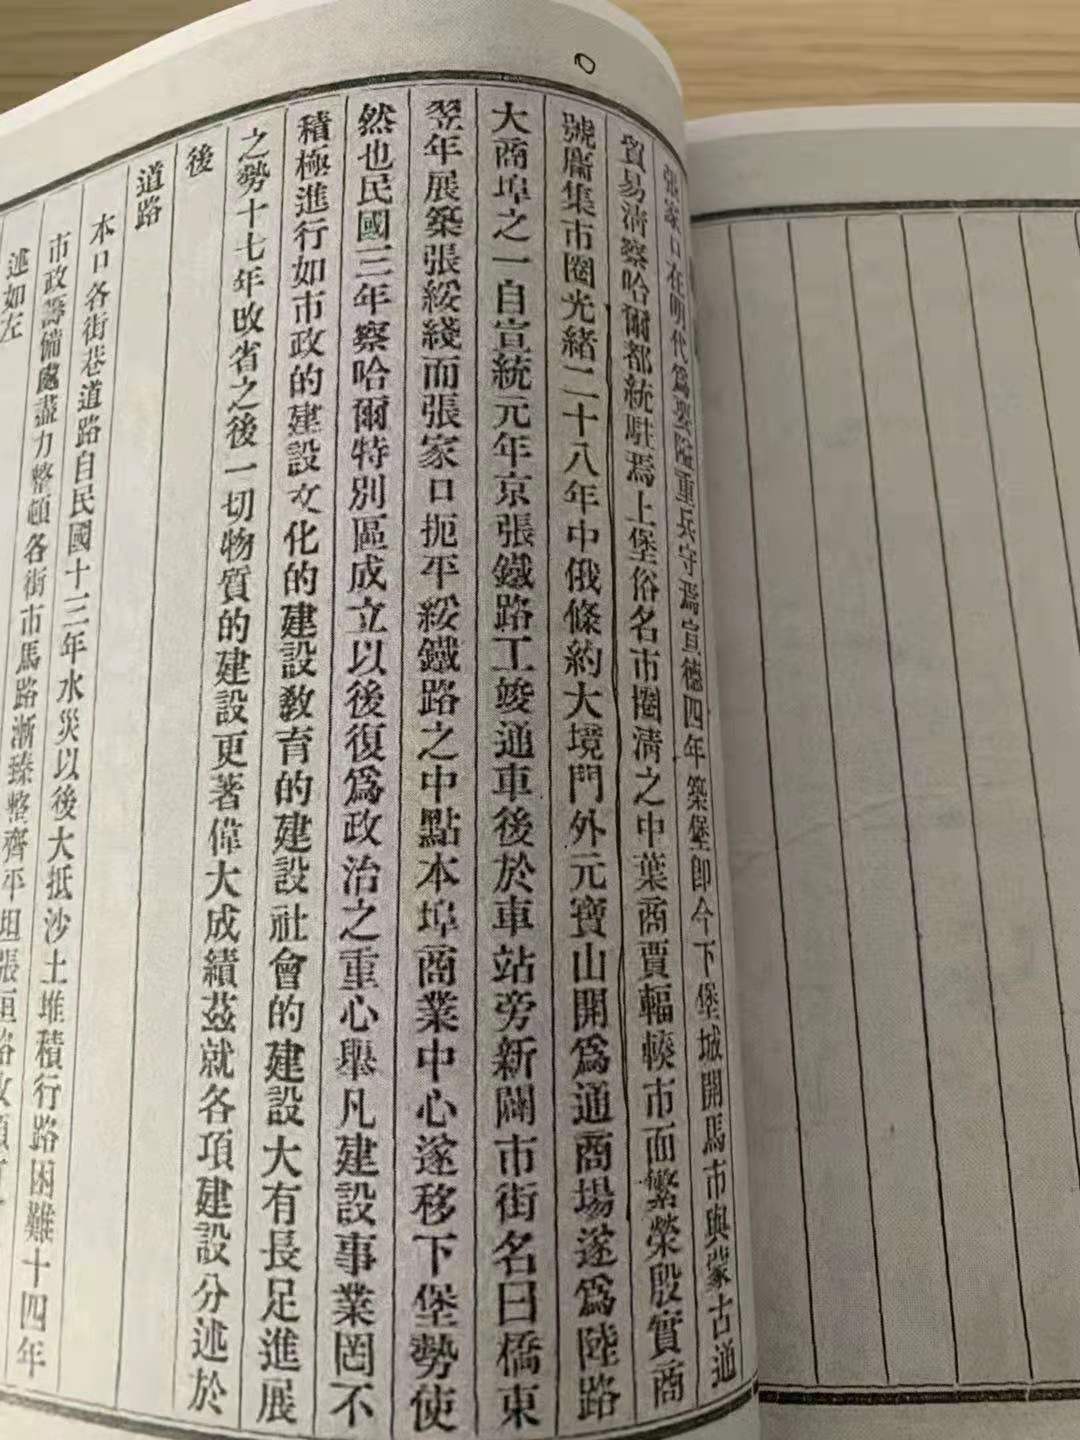 張家口在明代為要隘重兵守焉宣德四年築堡即今下堡城開馬市與蒙古通
貿易淸察哈爾都統駐焉上堡俗名市圈淸之中葉商賈輻輳市面繁榮殷實商
號廣集市圈光緒二十八年中俄條約大境門外元寶山開爲通商場遂爲陸路
大商埠之一自宣統元年京張鐵路工竣通車後於車站旁新闢市街名曰橋東
翌年展築張綏綫而張家口扼平綏鐵路之中點本埠商業中心遂移下堡勢使
然也民國三年察哈爾特別區成立以後復爲政治之重心舉凡建設事業罔不
積極進行如市政的建設文化的建設敎育的建設社會的建設大有長足進展
之勢十七年改省之後一切物質的建設更著偉大成績茲就各項建設分述於
後
道路
本口各街巷道路自民國十三年水災以後大抵沙土堆積行路困難十四年
市政籌備處盡力整頓各街市馬路漸臻整齊平坦張垣路政
述如左